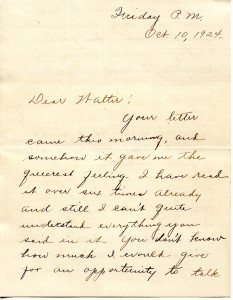 Friday P.M.
Oct 10, 1924.
Dear Walter!
Your letter
came this morning, and
somehow it gave me the
queerest feeling. I have read
it over six times already
and still I can't quite
understand everything you
said in it. You don't know
how much I would give
for an opportunity to talk